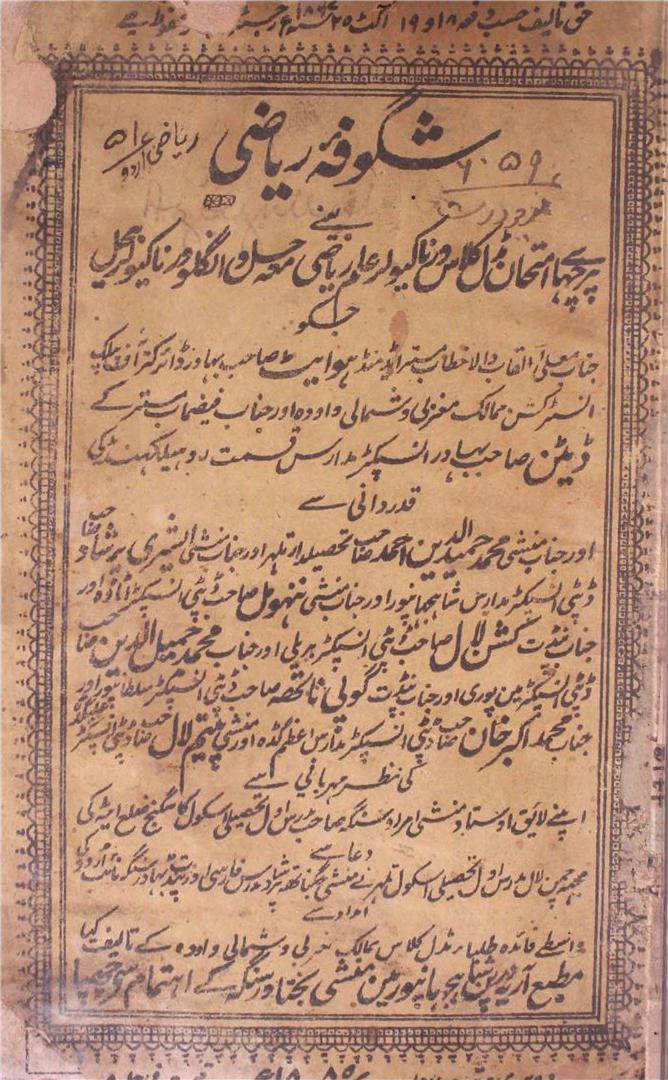 حق تالیف حسب دفعہ ۱۸ و ۱۹ اکٹ ۲۵
شگوفۂ ریاضی
ریاضی اردو ۵۱۶
۶۰۵۹
یعنے
پرچہاے امتحان مڈل کلاس ورناکیولر علم ریاضی معہ حل و انگلو ورناکیولر مڈل
جسکو
جناب معلیٰ القاب والا خطاب مسٹر ایڈمنڈ ہوایٹ صاحب بہادر ڈائرکٹر آف پبلک
انسٹرکشن ممالک مغربی و شمالی و اودہ اور جناب فیضمآب مسٹر کے
ڈیٹن صاحب بہادر انسپکٹر مدارس قسمت روہیلکھنڈ کی
قدردانی سے
اور جناب منشی محمد حمیدالدین احمد صاحب تحصیلدار تلہر اور جناب منشی ایشری پرشاد صاحب
ڈپٹی انسپکٹر مدارس شاہجہانپور اور جناب منشی ننہومل صاحب ڈپٹی انسپکٹر اٹاوہ اور
جناب پنڈت کشن لال صاحب ڈپٹی انسپکٹر بریلی اور جناب محمد جمیل الدین صاحب
ڈپٹی انسپکٹر مین پوری اور جناب پنڈت گوپی ناتھ صاحب ڈپٹی انسپکٹر سلطانپور اور
جناب محمد اکبر خان صاحب ڈپٹی انسپکٹر مدارس اعظم گڈہ اور منشی پیتم لال صاحب ڈپٹی انسپکٹر
کی نظر مہربانی سے
اپنے لایق اوستاد منشی امراو سنگہ صاحب مدرس اول تحصیلی اسکول کاسگنج ضلع ایٹہ کی
دعا سے
لال مدرس اول تحصیلی اسکول تلہر نے منشی جگناتھ پرشاد مدرس فارسی اور پنڈت بہادر سنگہ نائب
امداد سے
واسطے فائدہ طلباء مڈل کلاس ممالک مغربی و شمالی و اودہ کے تالیف کیا
مطبع آریہ درپن شاہجہانپور مین منشی بختاور سنگہ کے اہتمام سے چھپا